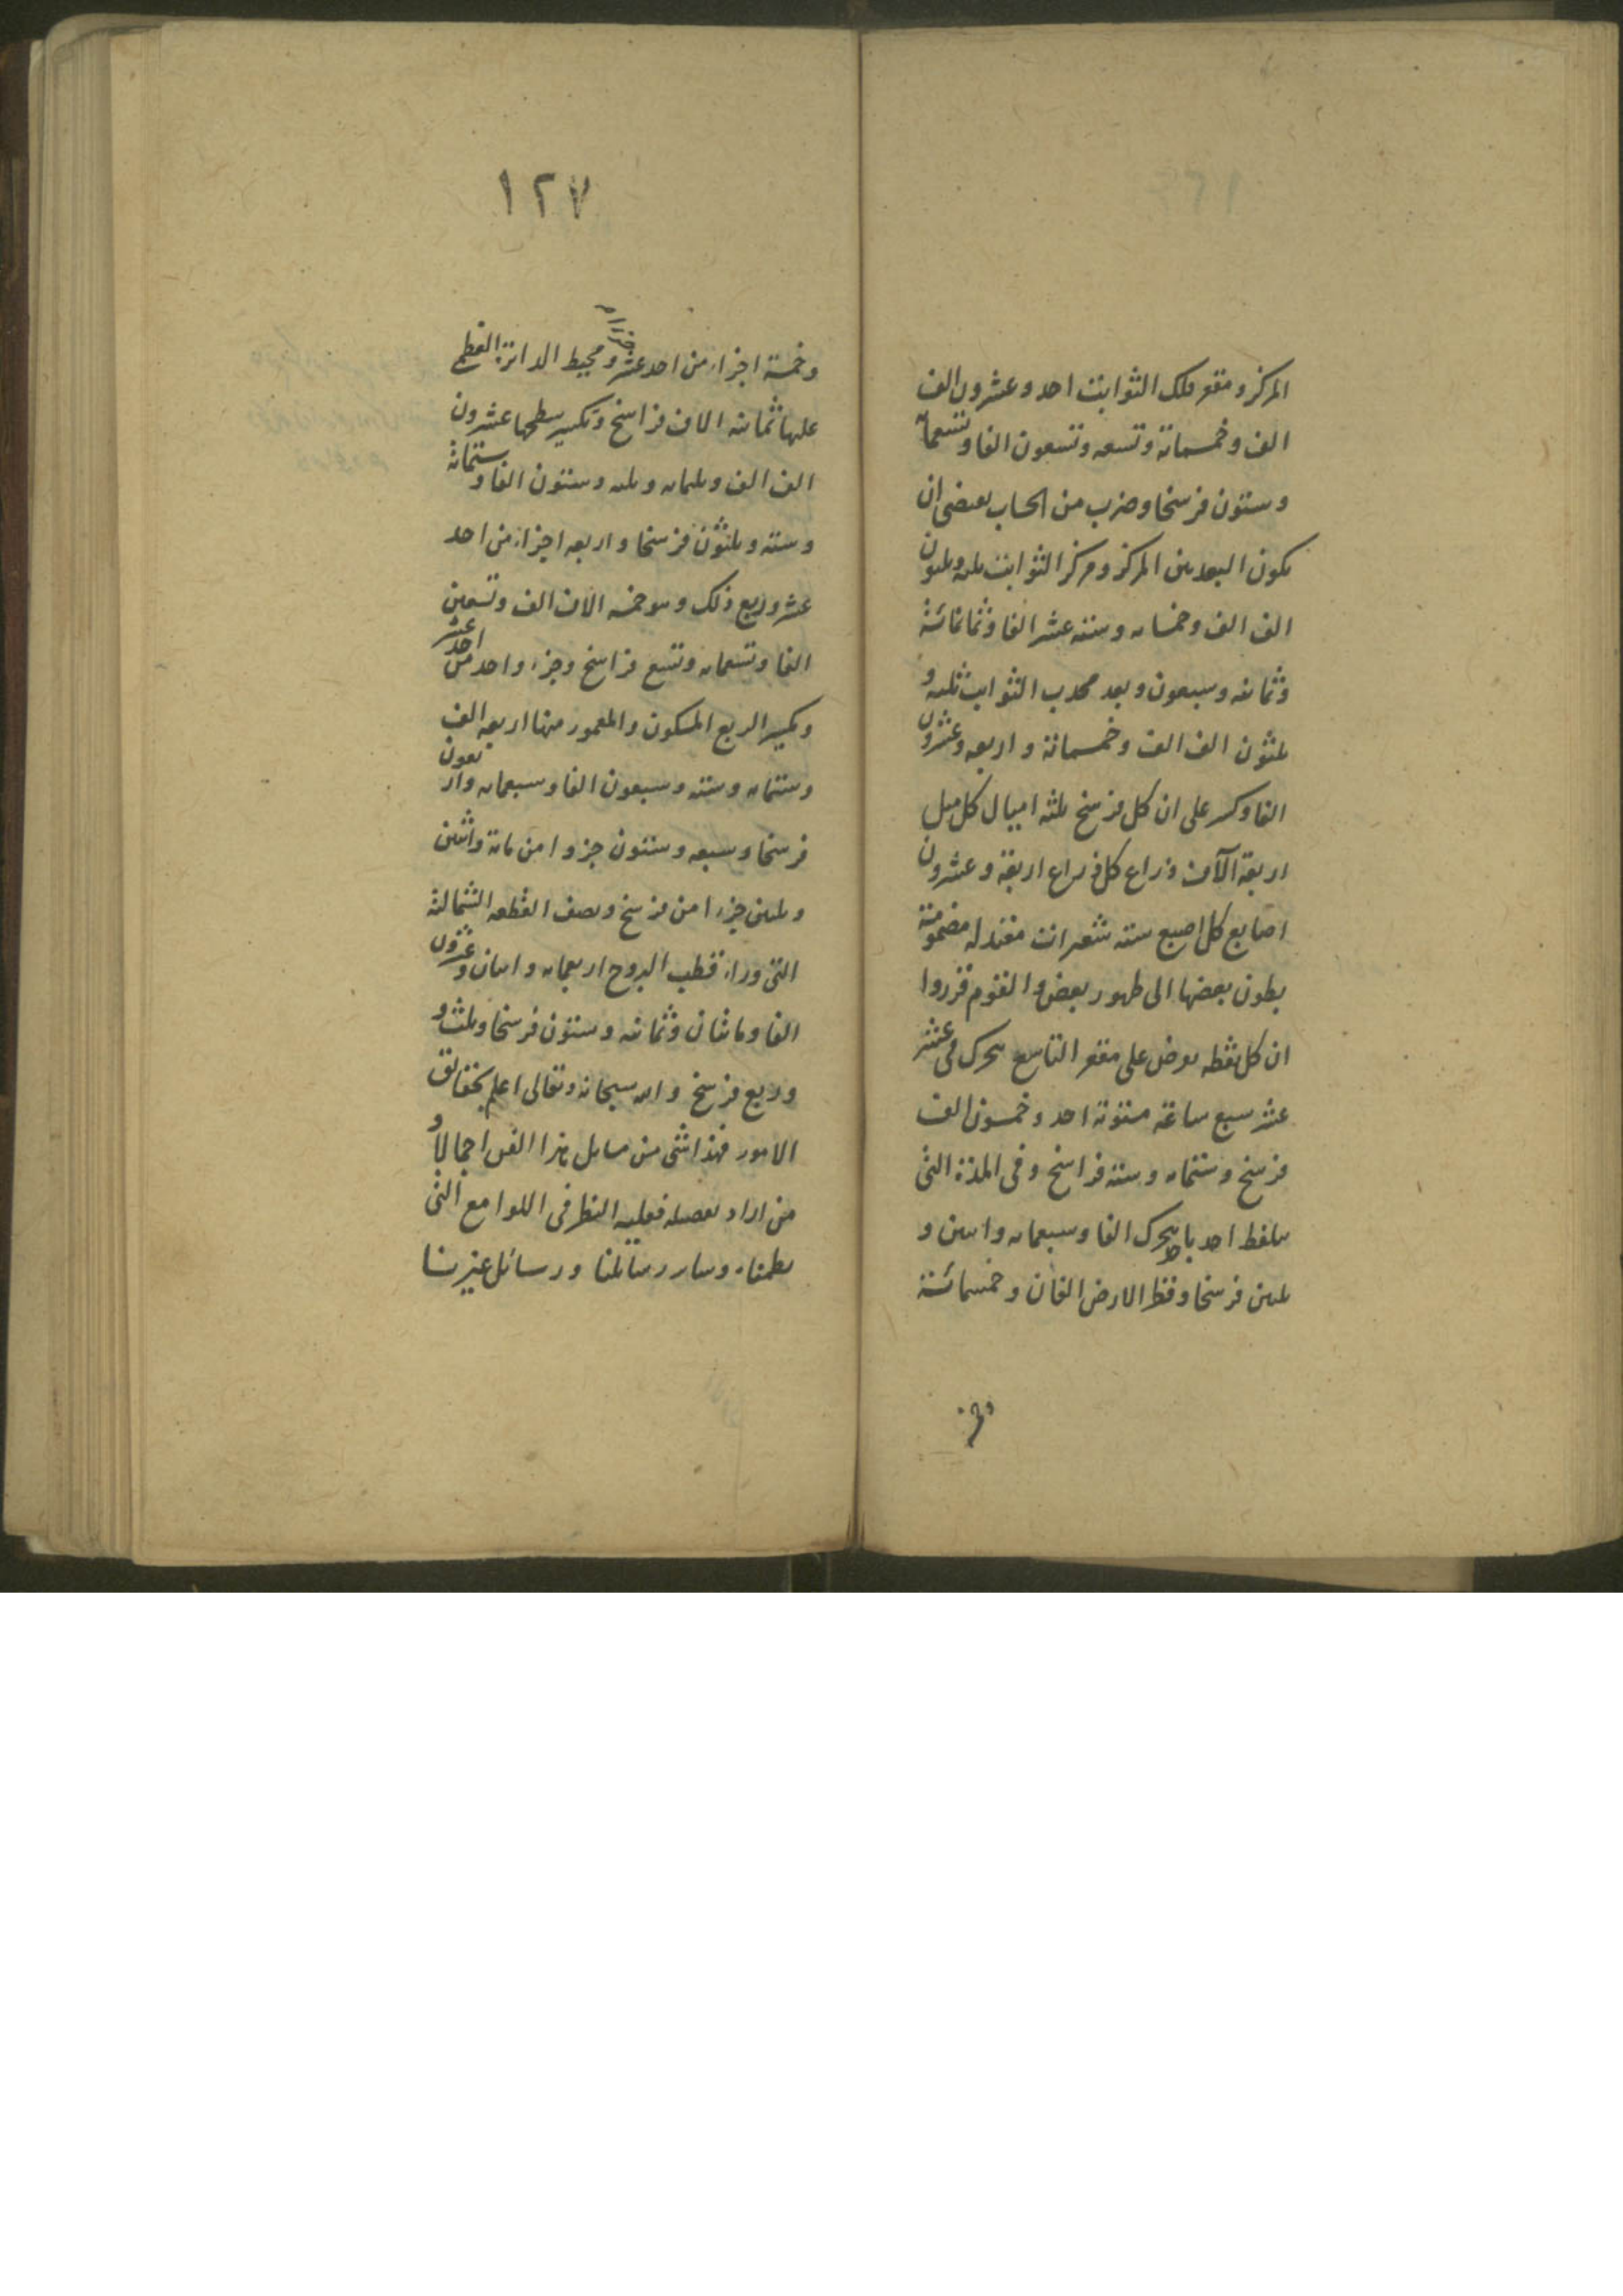 المركز ومقعر فلك الثوابت احد وعشرون الف
الف وخمسمائة وتسعه وتسعون الفا وتسعمائة
وستون فرسخا وضرب من الحساب يقتضى ان
يكون البعد بين المركز ومركز الثوابت ثلثه وثلثون
الف الف وخمسمائه وستة عشر الفا وثمانمائة
وثمانيه وسبعون وبعد محدب الثوابت ثلثه و
ثلثون الف الف وخمسمائة واربعه وعشرون
الفا وكسر على ان كل فرسخ ثلثه اميال كل ميل
اربعة آلاف ذراع كل ذراع اربعة وعشرون
اصابع كل اصبع سته شعيرات معتدله مضمومة
بطون بعضها الى ظهور بعض والقوم قرروا
ان كل نقطه تفرض على مقعر التاسع يتحرك فى عشر
عشر سبع ساعة مستوية احد وخمسون الف
فرسخ وستمائه وسته فراسخ وفى المدة التى
يتلفظ احد بالا يتحرك الفا وسبعمائه واثنين و
ثلثين فرسخا وقطر الارض الفان وخمسمائة
١٢٧
وخمسة اجزاء من احد عشر ومحيط الدائرة العظمى
عليها ثمانيه الاف فراسخ وتكسير سطحها عشرون
الف الف وثلثمائه وثلثه وستون الفا وستمائة
وسته وثلثون فرسخا واربعه اجزاء من احد
عشر وربع ذلك وهو خمسه الاف الف وتسعين
الفا وتسعمائه وتسع فراسخ وجزء واحد من احد عشر
وتكسير الربع المسكون والمعمور منها اربعه الف
وستمائه وسته وسبعون الفا وسبعمائه واربعون
فرسخا وسبعه وستون جزوا من مائة واثنين
وثلثين جزءا من فرسخ ونصف القطعه الشمالية
التى وراء قطب البروج اربعمائه واثنان وعشرون
الفا ومائتان وثمانيه وستون فرسخا وثلث و
وربع فرسخ والله سبحانه وتعالى اعلم بحقائق
الامور فهذا شئ من مسايل هذا الفن اجمالا و
من اراد تفصيله فعليه النظر فى اللوامع التى
نظمناه وساير رسائلنا ورسائل غيرنا